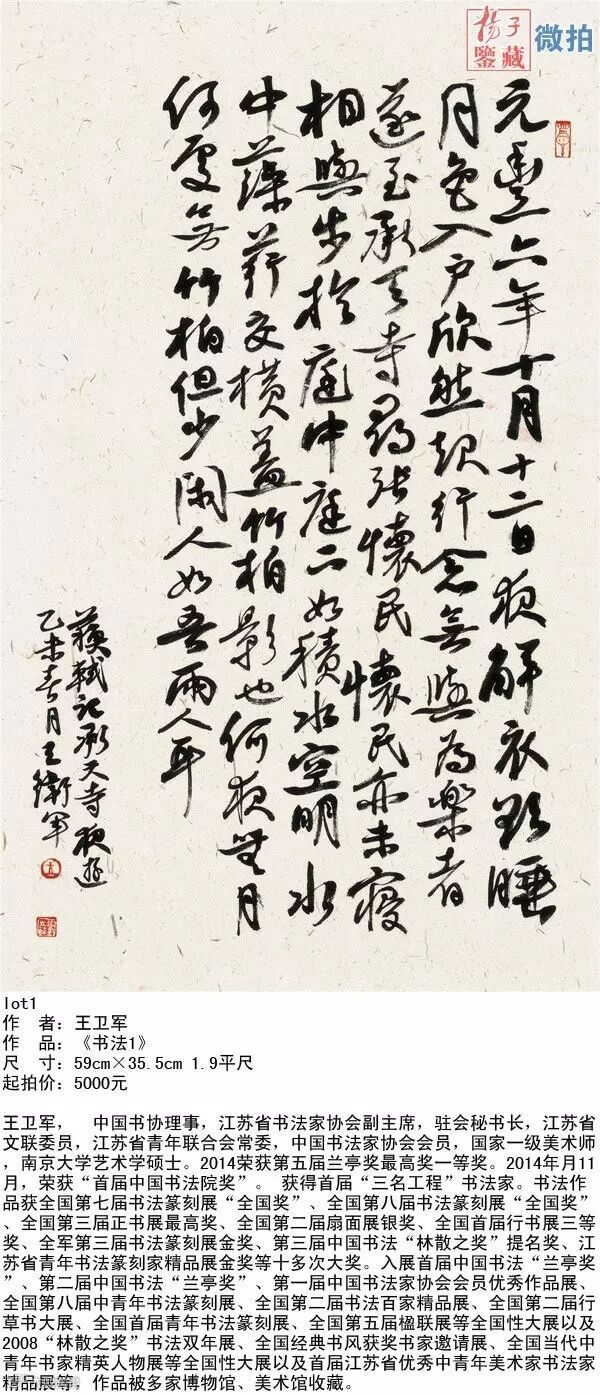 揚子
鑒藏
微拍
元豐六年十月十二日夜解衣欲睡
月色入戶欣然起行念無與為樂者
遂至承天寺尋張懷民懷民亦未寢
相與步於庭中庭下如積水空明水
中藻荇交橫蓋竹柏影也何夜無月
何處無竹柏但少閑人如吾兩人耳
蘇軾記承天寺夜遊
乙未春月王衛軍
lot1
作　者：王卫军
作　品：《书法1》
尺　寸：59cm×35.5cm 1.9平尺
起拍价：5000元
王卫军，　中国书协理事，江苏省书法家协会副主席，驻会秘书长，江苏省
文联委员，江苏省青年联合会常委，中国书法家协会会员，国家一级美术师
，南京大学艺术学硕士。2014荣获第五届兰亭奖最高奖一等奖。2014年月11
月，荣获“首届中国书法院奖”。 获得首届“三名工程”书法家。书法作
品获全国第七届书法篆刻展“全国奖”、全国第八届书法篆刻展“全国奖”
、全国第三届正书展最高奖、全国第二届扇面展银奖、全国首届行书展三等
奖、全军第三届书法篆刻展金奖、第三届中国书法“林散之奖”提名奖、江
苏省青年书法篆刻家精品展金奖等十多次大奖。入展首届中国书法“兰亭奖
”、第二届中国书法“兰亭奖”、第一届中国书法家协会会员优秀作品展、
全国第八届中青年书法篆刻展、全国第二届书法百家精品展、全国第二届行
草书大展、全国首届青年书法篆刻展、全国第五届楹联展等全国性大展以及
2008“林散之奖”书法双年展、全国经典书风获奖书家邀请展、全国当代中
青年书家精英人物展等全国性大展以及首届江苏省优秀中青年美术家书法家
精品展等，作品被多家博物馆、美术馆收藏。